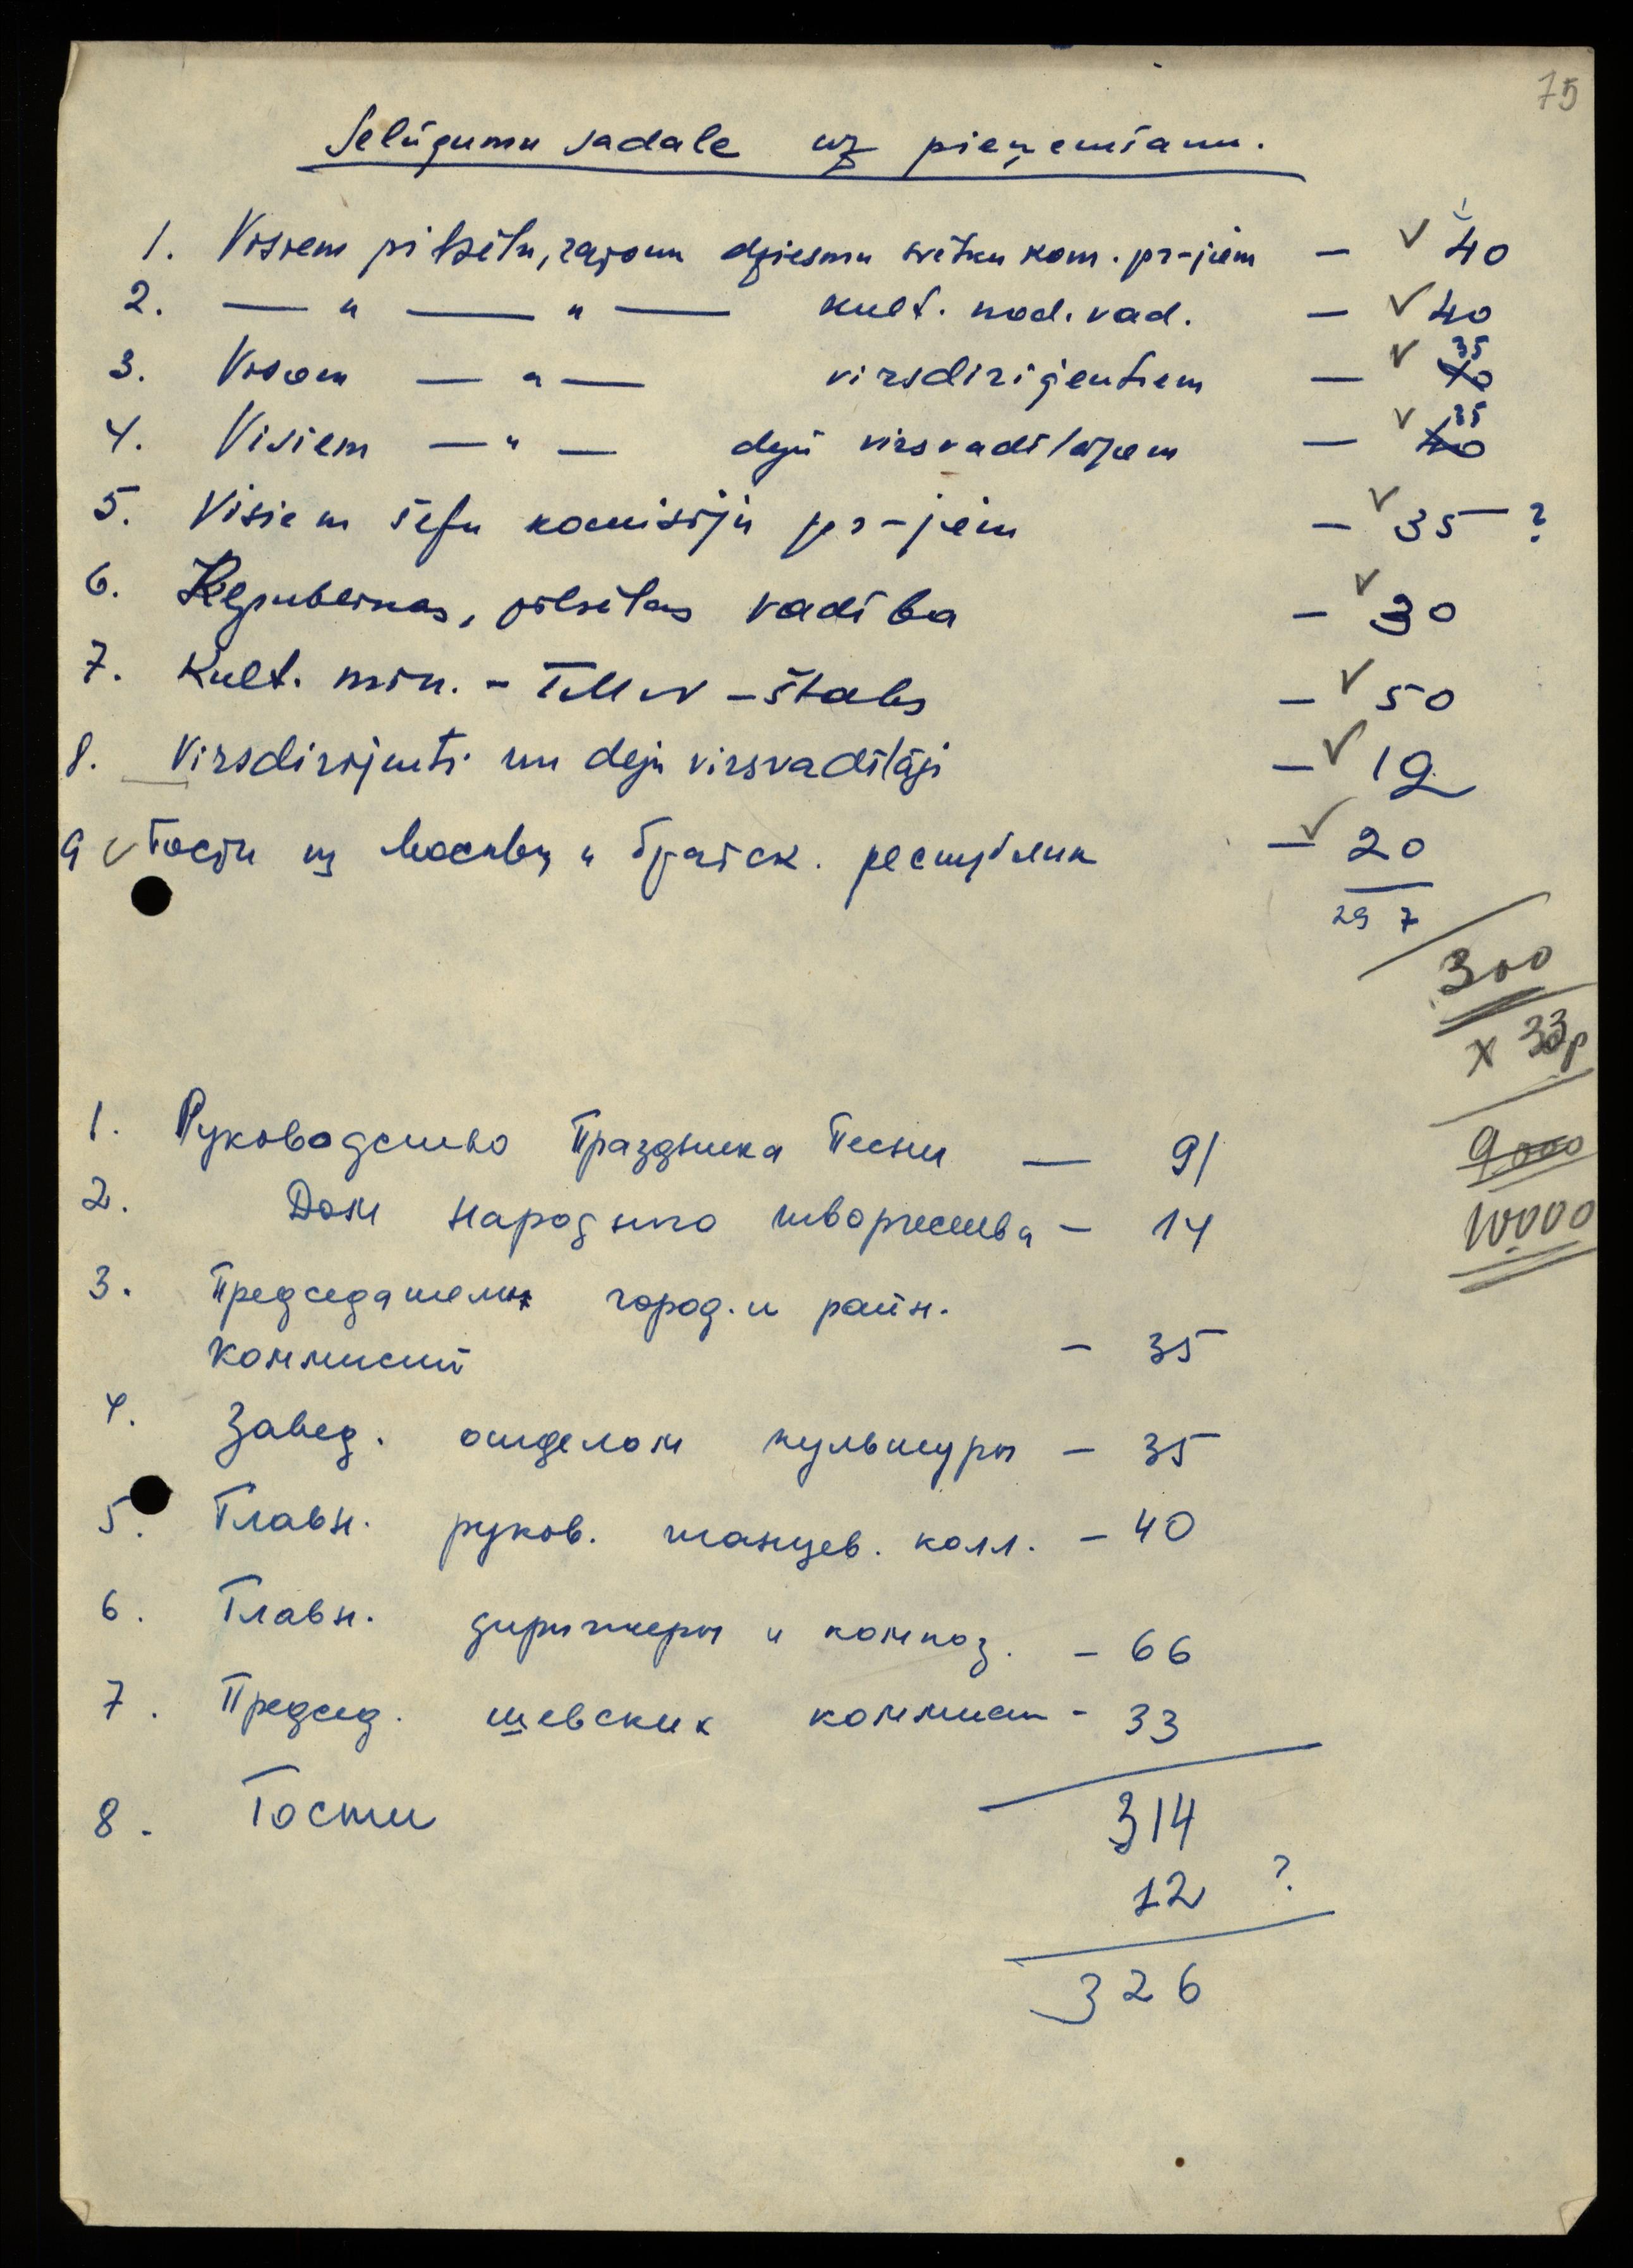 75
Ielūgumu sadale uz pieņemšanu.
1. Visiem pilsētu, rajonu dziesmu svētku kom. pr-jiem - ✓ 40
2. — " — " — kult. nod. vad. - ✓ 40
3. Visiem — " — virsdiriģentiem - ✓ 40 35
4. Visiem — " — deju virsvadītājiem - ✓ 40 35
5. Visiem šefu komisiju pr-jiem - ✓ 35 - ?
6. Republikas, pilsētas vadība - ✓ 30
7. Kult. min. - TMN - štabs - ✓ 50
8. Virsdiriģenti un deju virsvadītāji - ✓ 12
9 ✓ Гости из Москвы и братск. республик - ✓ 20
297
300
x 33р
9000
10000
1. Руководство Праздника Песни — 91
2. Дом народного творчества - 14
3. Председатели город. и район.
коммисий - 35
4. Завед. отделом культуры - 35
5. Главн. руков. танцев. колл. - 40
6. Главн. дирижеры и композ. - 66
7. Председ. шевских коммисий - 33
314
8. Гости
12 ?
326